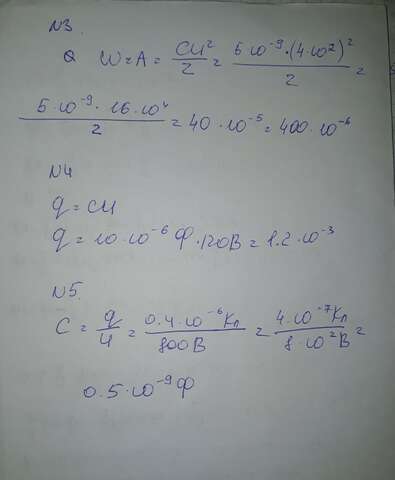 N3.
W = A = CU²/2 = 5·10⁻⁹·(4·10²)²/2 =
5·10⁻⁹·16·10⁴/2 = 40·10⁻⁵ = 400·10⁻⁶
N4
q = CU
q = 10·10⁻⁶ Ф·120В = 1.2·10⁻³
N5.
C = q/U = 0.4·10⁻⁶Кл/800В = 4·10⁻⁷Кл/8·10²В =
0.5·10⁻⁹Ф